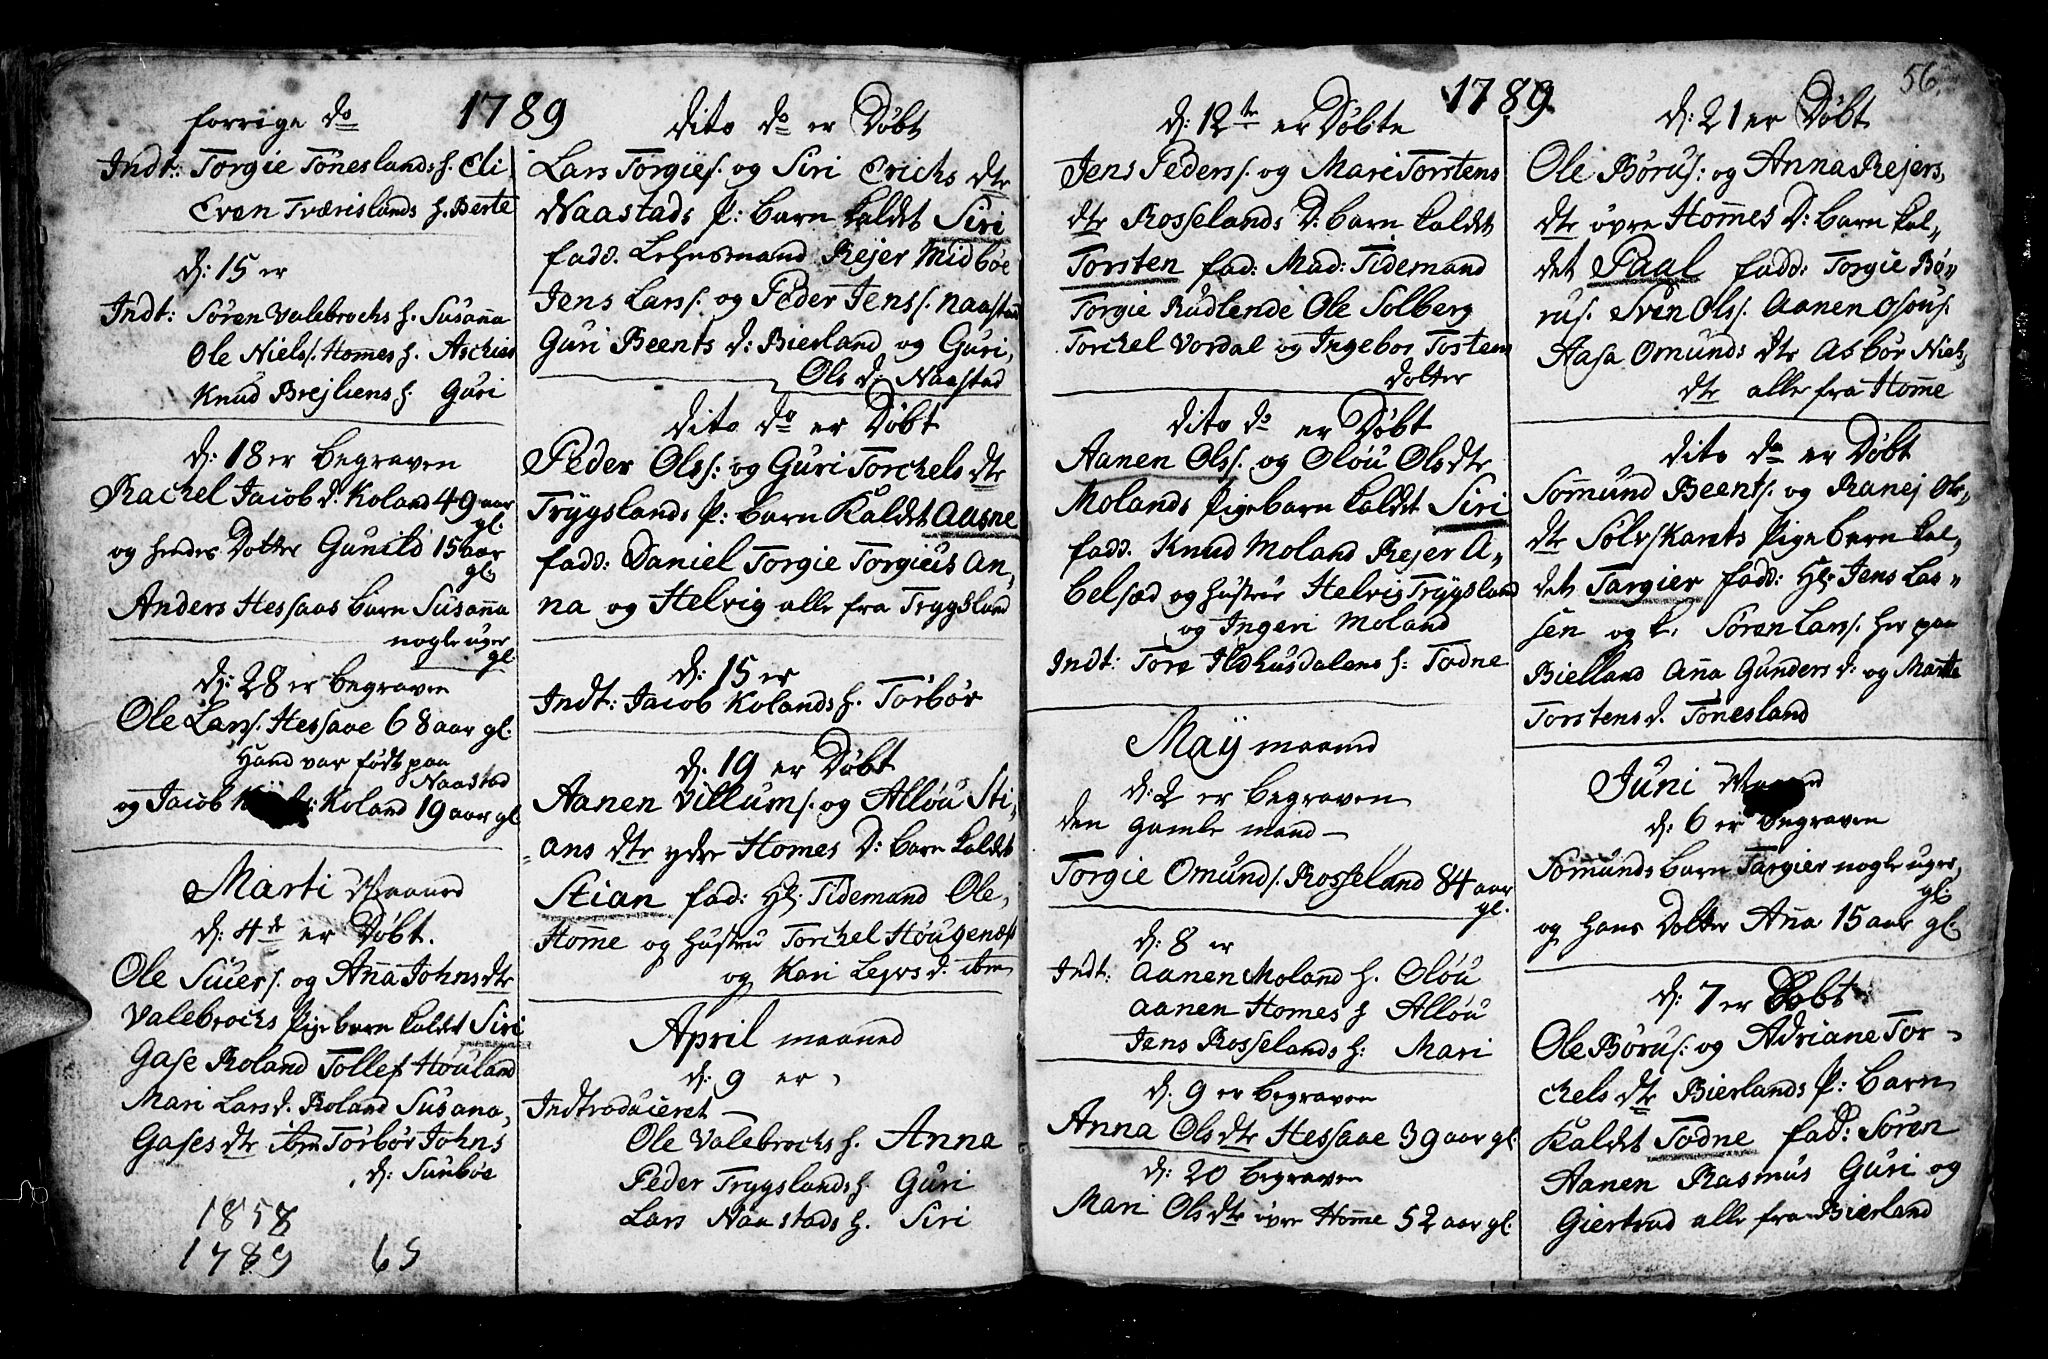 1789
forrige do
Indt: Torgie Töneslands h. Eli
Even Tværislands h. Berte
d: 15 er
Indt: Sören Valebrochs h. Susaña
Ole Niels. Hom̃es h. Aschier
Knud Brejliens h. Guri
d: 18 er begraven
Rachel Jacob d. Koland 49 aar
gl:
og hendes Dotter Gunild 15 aar
gl:
Anders Hessaas barn Susaña
nogle uger
gl
d: 28 er begraven
Ole Lars. Hessaae 68 aar gl:
Hand var født paa
Naastad
og Jacob Koland 19 aar gl
Marti Maaned
d: 4de er Døbt.
Ole Siuers. og Aña Johns dtr
Valebrochs Pige barn kaldet Siri
Gase Roland Tollef Høuland
Mari Lars d. Roland Susana,
Gases dtr ibm Torbør Johns
d: Sunbøe
1858
1789 65
Dito do er Døbt
Lars Torgies. og Siri Erichs dtr
Naastads P: barn kaldet Siri
fadd. Lehnsmand Rejer Midbøe
Jens Lars. og Peder Jens. Naastad
Guri Beents d: Bierland og Guri,
Ols d: Naastad
Dito do er Døbt
Peder Ols: og Guri Torchels dtr
Trygslands P: barn Kaldet Aasne
fadd: Daniel Torgie Torgius An,
na og Helvig alle fra Trygsland
d: 15 er
Indt: Jacob Kolands h. Torbør
d. 19 er Døbt
Aanen Villums. og Alløu Sti,
ans dtr ydre Homes D: barn kaldet
Stian fad: Hr: Tidemand Ole,
Hom̃e og hustru Torchel Høugenæs
og Kari Lejvs d. ibm
April maaned
d: 9 er
Indtroduceret
Ole Valebrochs h. Anna
Peder Trygslands h. Guri
Lars Naastads h. Siri
1789
56
d: 12te er Døbte
Jens Peders. og Mari Torstens
dtr Rosselands D: barn kaldet
Torsten fad: Mad: Tidemand
Torgie Rudlende Ole Solberg
Torchel Vordal og Ingebor Tostens
dotter
Dito do er Døbt
Aanen Ols. og Oløu Ols dtr
Molands Pigebarn kaldet Siri
fadd. Knud Moland Rejer A,
belsæd og hustrue Helvig Trygsland
og Ingeri Moland
Indt: Tore Ildhusdalens h: Todne
Maÿ maaned
d: 2 er begraven
den gamle mand
Torgie Omunds. Rosseland 84 aar
gl.
d: 8 er
Indt: Aanen Moland h. Oløu
Aanen Homes h Alløu
Jens Rosselands h: Mari
d: 9 er begraven
Anna Ols dtr Hessaae 39 aar gl:
d: 20 begraven
Mari Ols dtr øvre Hom̃e 52 aar gl:
d: 21 er Døbt
Ole Børus: og Anna Rejers,
dtr øvre Hom̃es D: barn kal,
det Paal fadd: Torgie Bø,
rus. Sven Ols. Aanen Osous.
Aasa Omunds dtr Asbør Niels,
dtr alle fra Hom̃e
Dito do er Døbt
Somund Beents. og Ranej Ols
dtr Sølvskants Pige barn kal,
det Targier fadd: Hr: Jens Las,
sen og k: Søren Lars. her paa
Bielland Aña Gunders d: og Marta
Torstens d. Tonesland
Juni Maaned
d: 6 er begraven
Somunds barn Targier nogle uger,
gl:
og hans Dotter Aña 15 aar gl:
d: 7 er Døbt
Ole Børus: og Adriane Tor-
chels dtr Bierlands P: barn
Kaldet Todne fad: Søren
Aanen Rasmus Guri og
Giertrud alle fra Bierland